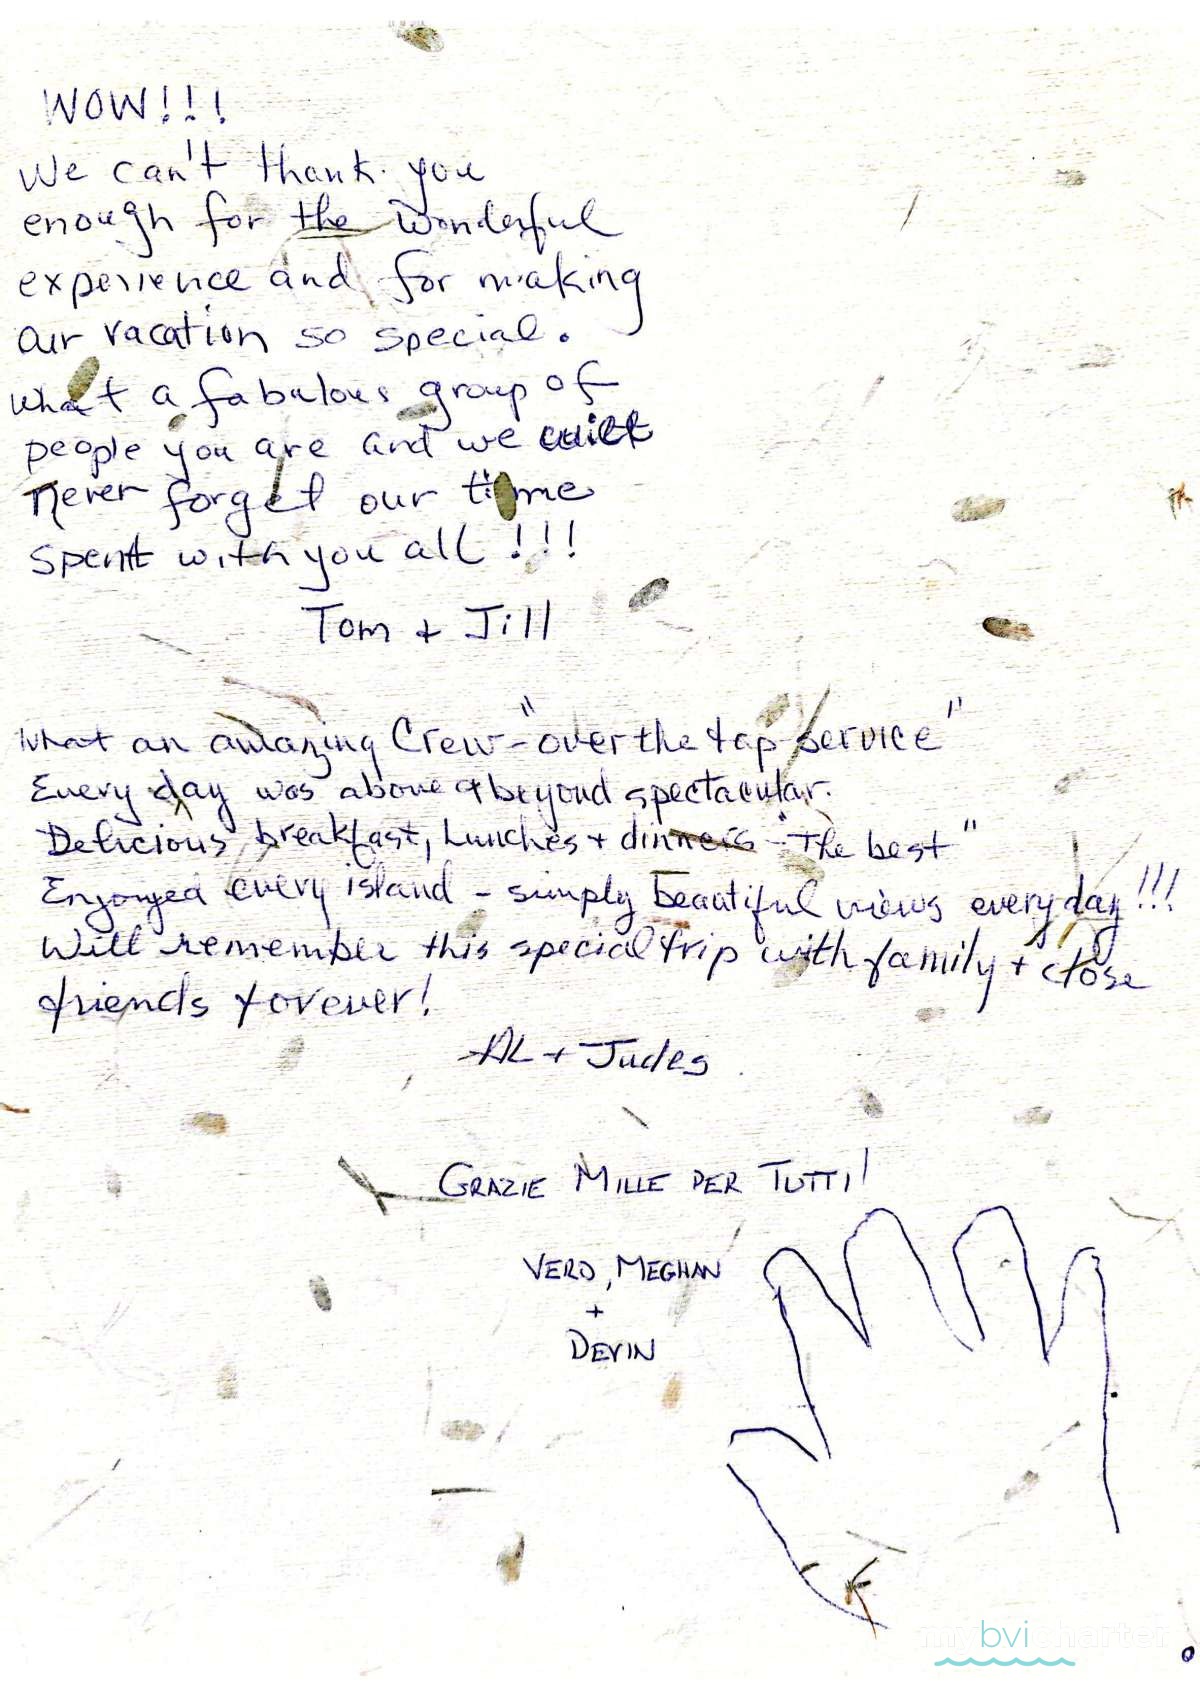 WOW!!!
We can't thank you
enough for the wonderful
experience and for making
our vacation so special.
What a fabulous group of
people you are and we will
never forget our time
spent with you all !!!
Tom + Jill
What an amazing Crew - "over the top service"
Every day was above & beyond spectacular.
Delicious breakfast, Lunches + dinners - "The best"
Enjoyed every island - simply beautiful views everyday!!!
Will remember this special trip with family + close
friends forever!
Al + Judes
GRAZIE MILLE PER TUTTI!
VERO, MEGHAN
+
DEVIN
mybvicharter